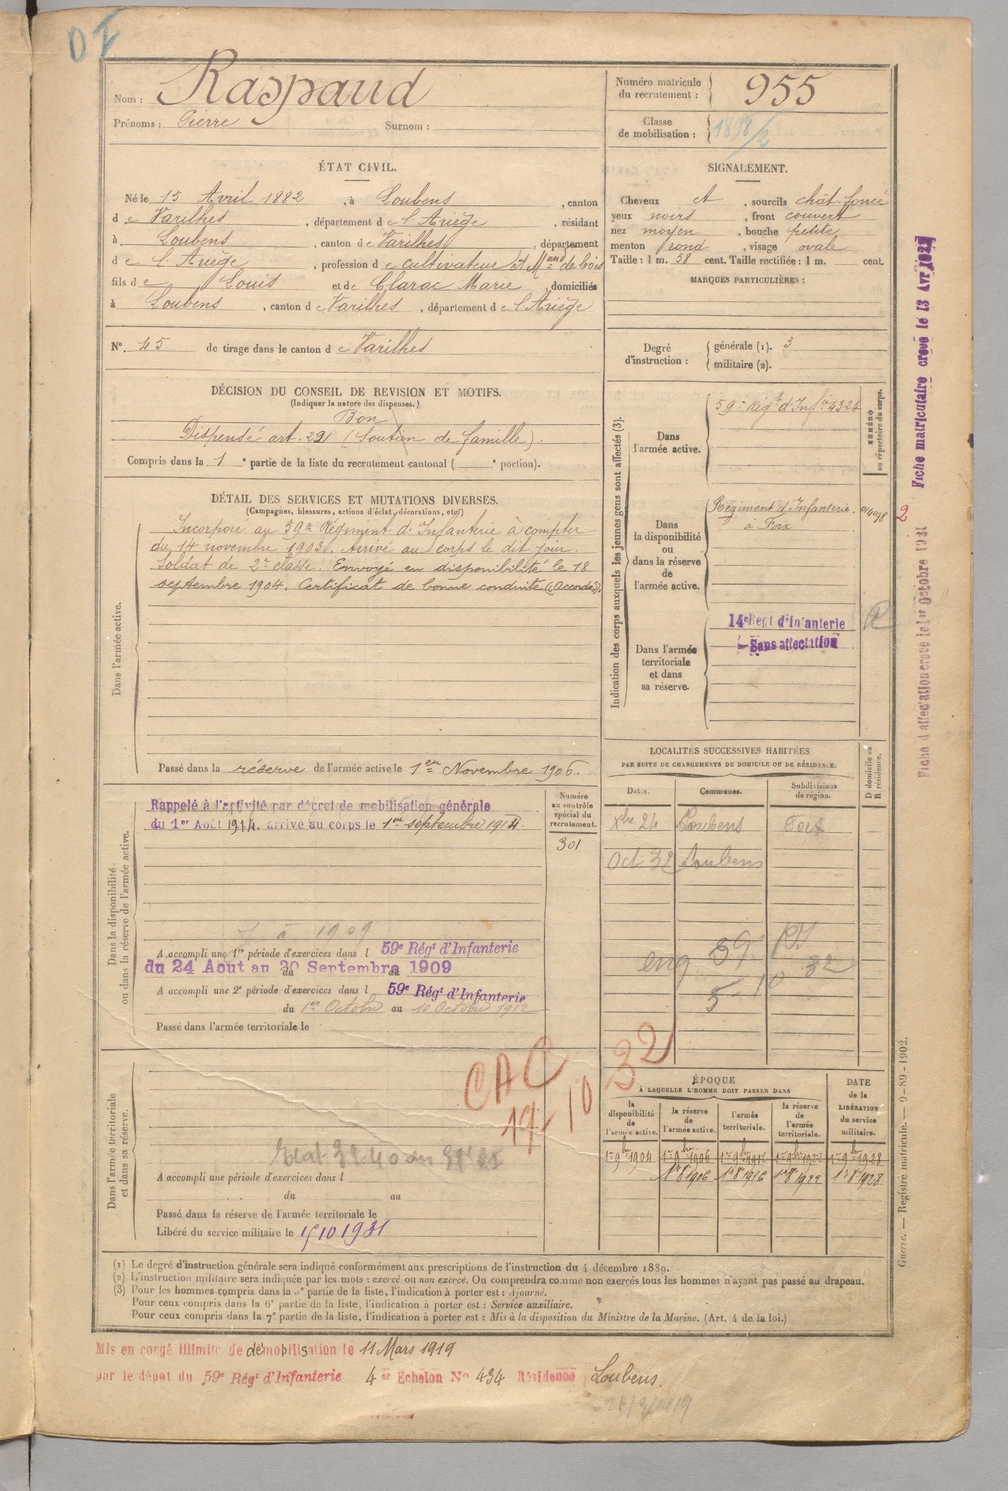 Nom : Raspaud
Prénoms : Pierre Surnom :
Numéro matricule du recrutement : 955
Classe de mobilisation : 1898/2
ÉTAT CIVIL.
Né le 15 Avril 1882, à Loubens, canton
d e Varilhes, département d e l'Ariège, résidant
à Loubens, canton d e Varilhes, département
d e l'Ariège, profession d e cultivateur et Mand de bois
fils d e Louis et de Clarac Marie, domiciliés
à Loubens, canton d e Varilhes, département d e l'Ariège
N° 45 de tirage dans le canton d e Varilhes
SIGNALEMENT.
Cheveux et, sourcils chât. foncé
yeux noirs, front couvert
nez moyen, bouche petite
menton rond, visage ovale
Taille : 1 m. 58 cent. Taille rectifiée : 1 m. cent.
MARQUES PARTICULIÈRES :
Degré d'instruction : générale (1). 3
militaire (2).
DÉCISION DU CONSEIL DE REVISION ET MOTIFS.
(Indiquer la nature des dispenses.)
Bon
Dispensé art. 221 (Soutien de famille).
Compris dans la 1e partie de la liste du recrutement cantonal ( e portion).
DÉTAIL DES SERVICES ET MUTATIONS DIVERSES.
(Campagnes, blessures, actions d'éclat, décorations, etc.)
Dans l'armée active.
Incorporé au 59e Régiment d'Infanterie à compter
du 14 novembre 1903. Arrivé au corps le dit jour.
Soldat de 2e classe. Envoyé en disponibilité le 18
septembre 1904. Certificat de bonne conduite (Accordé).
Passé dans la réserve de l'armée active le 1er Novembre 1906.
Indication des corps auxquels les jeunes gens sont affectés (3).
NUMÉRO au répertoire du corps.
Dans l'armée active.
59e Régt d'Infie 4324
Dans la disponibilité ou dans la réserve de l'armée active.
Régiment d'Infanterie
à Foix
Dans l'armée territoriale et dans sa réserve.
14e Regt d'Infanterie
Sans affectation
Fiche matriculaire créée le 13 Avr 1921
2
Fiche d'affectation créée le 1er Octobre 1921
Dans la disponibilité ou dans la réserve de l'armée active.
Rappelé à l'activité par décret de mobilisation générale
du 1er Août 1914. arrivé au corps le 1er septembre 1914.
Numéro au contrôle spécial du recrutement.
301
A accompli une 1re période d'exercices dans l 59e Régt d'Infanterie
du 24 Aout au 30 Septembre 1909
A accompli une 2e période d'exercices dans l 59e Régt d'Infanterie
du 1er Octobre au 10 Octobre 1912
Passé dans l'armée territoriale le
LOCALITÉS SUCCESSIVES HABITÉES
PAR SUITE DE CHANGEMENTS DE DOMICILE OU DE RÉSIDENCE.
Dates. Communes. Subdivisions de région. D domicile ou R résidence.
Xbre 24 Loubens Foix
Oct 32 Loubens
CAC
17-10 32
Dans l'armée territoriale et dans sa réserve.
A accompli une période d'exercices dans l
du au
Passé dans la réserve de l'armée territoriale le
Libéré du service militaire le 15 10 1931
ÉPOQUE
À LAQUELLE L'HOMME DOIT PASSER DANS
la disponibilité de l'armée active. la réserve de l'armée active. l'armée territoriale. la réserve de l'armée territoriale. DATE de la LIBÉRATION du service militaire.
1er 9bre 1904 1er 9bre 1906 1er 9bre 1916 1er 9bre 1922 1er 9bre 1928
1er 8 1906 1er 8 1916 1er 8 1922 1er 8 1928
(1) Le degré d'instruction générale sera indiqué conformément aux prescriptions de l'instruction du 4 décembre 1889.
(2) L'instruction militaire sera indiquée par les mots : exercé ou non exercé. On comprendra comme non exercés tous les hommes n'ayant pas passé au drapeau.
(3) Pour les hommes compris dans la 5e partie de la liste, l'indication à porter est : Ajourné.
Pour ceux compris dans la 6e partie de la liste, l'indication à porter est : Service auxiliaire.
Pour ceux compris dans la 7e partie de la liste, l'indication à porter est : Mis à la disposition du Ministre de la Marine. (Art. 4 de la loi.)
Guerre. — Registre matricule. — 9-89-1902.
Mis en congé illimité de démobilisation le 11 Mars 1919
par le dépôt du 59e Régt d'Infanterie 4er Echelon No 434 Résidence Loubens.